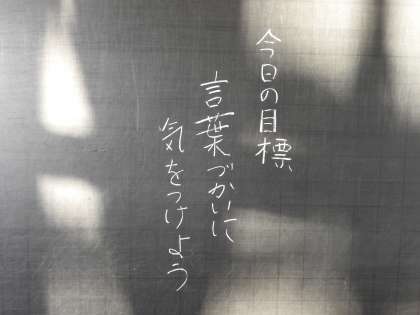 今日の目標
言葉づかいに
気をつけよう